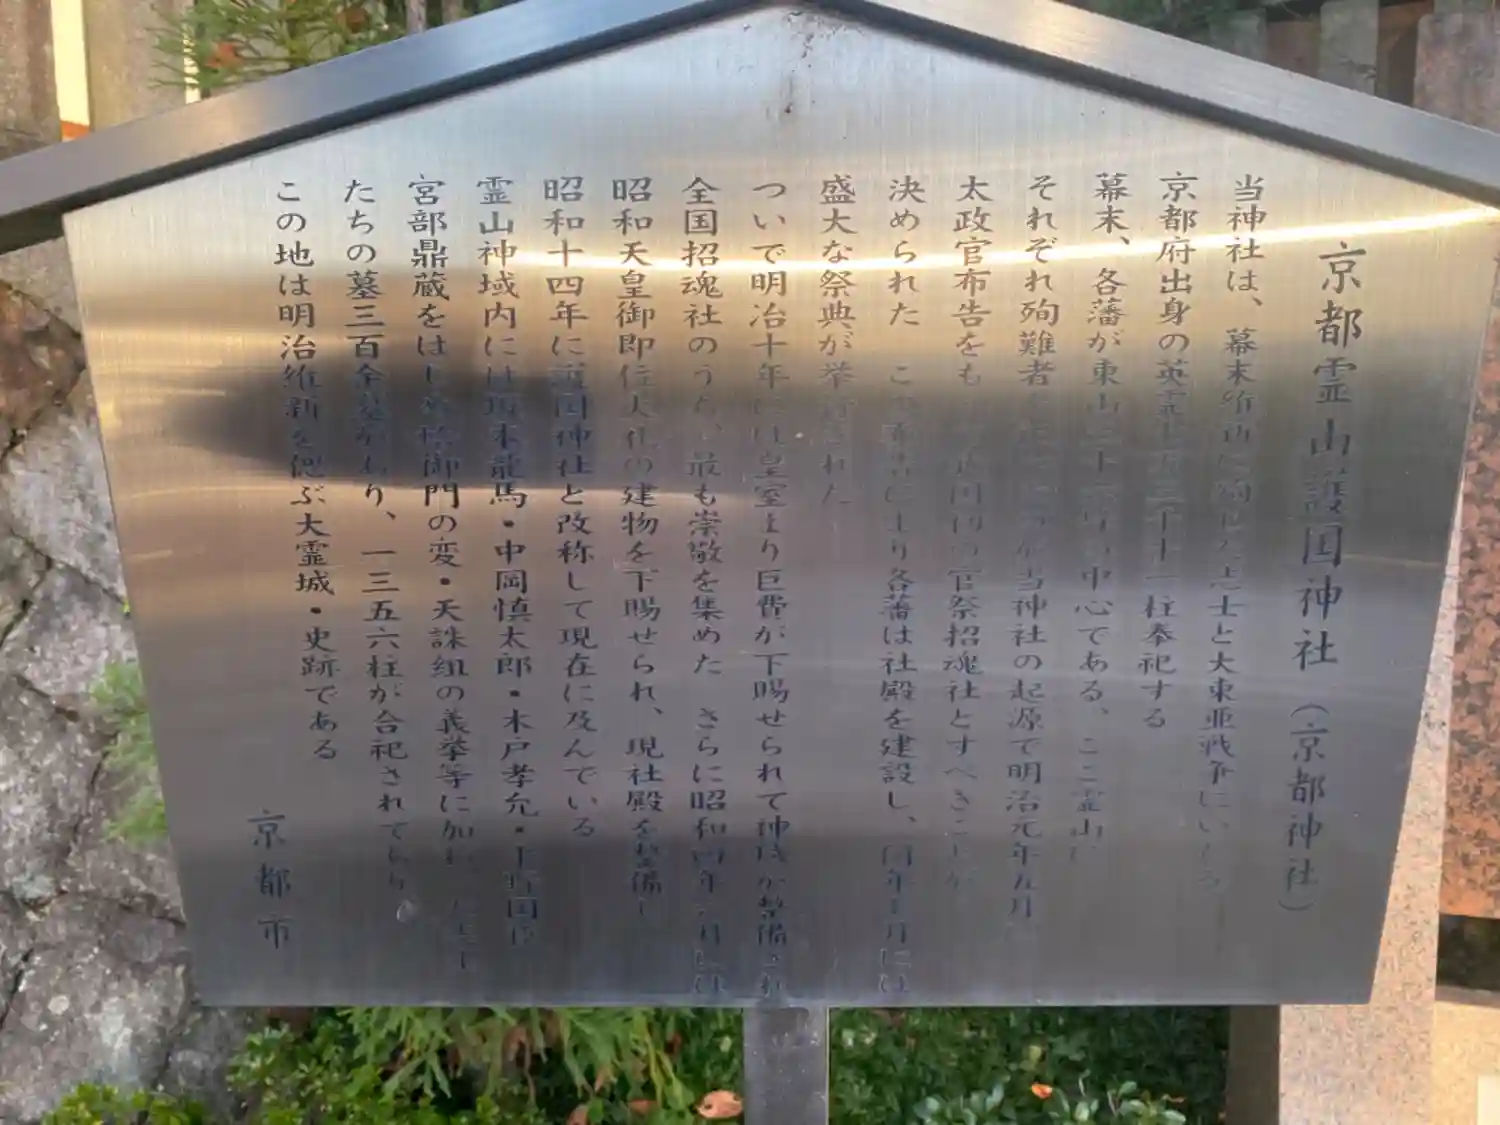 京都霊山護国神社（京都神社）
当神社は、幕末維新に殉じた志士と大東亜戦争にいたる
京都府出身の英霊 柱奉祀する
幕末、各藩が東山 中心である、ここ霊山に
それぞれ殉難者 当神社の起源で明治元年五月
太政官布告をも 官祭招魂社とすべきことが
決められた この布告により各藩は社殿を建設し、同年七月には
盛大な祭典が挙行された
ついで明治十年には皇室より巨費が下賜せられて神域が整備され
全国招魂社のうち、最も崇敬を集めた さらに昭和四年 月には
昭和天皇御即位大礼の建物を下賜せられ、現社殿を整備し
昭和十四年に護国神社と改称して現在に及んでいる
霊山神域内には坂本龍馬・中岡慎太郎・木戸孝允・
宮部鼎蔵をはじめ蛤御門の変・天誅組の義挙等に加わ
たちの墓三百余墓があり、一三五六柱が合祀されており
この地は明治維新を偲ぶ大霊城・史跡である
京都市